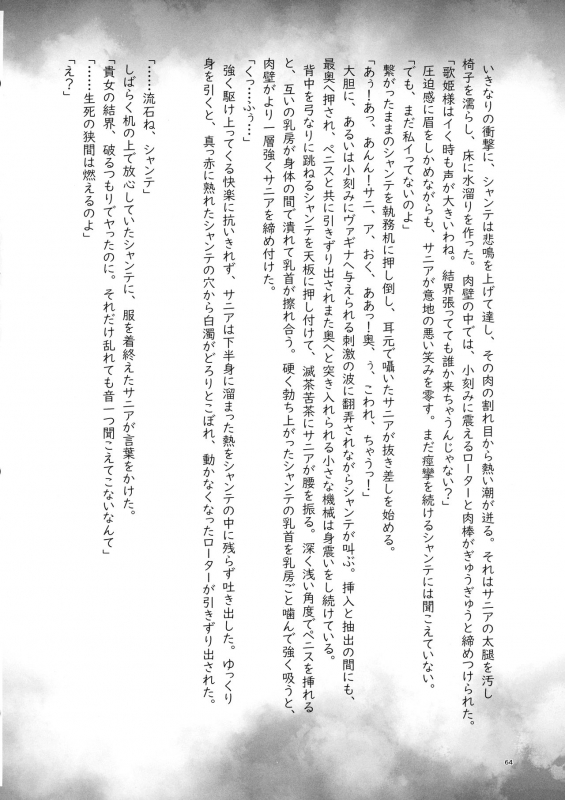 いきなりの衝撃に、シャンテは悲鳴を上げて達し、その肉の割れ目から熱い潮が迸る。それはサニアの太腿を汚し
椅子を濡らし、床に水溜りを作った。肉壁の中では、小刻みに震えるローターと肉棒がぎゅうぎゅうと締めつけられた。
「歌姫様はイく時も声が大きいわね。結界張ってても誰か来ちゃうんじゃない？」
圧迫感に眉をしかめながらも、サニアが意地の悪い笑みを零す。まだ痙攣を続けるシャンテには聞こえていない。
「でも、まだ私イってないのよ」
繋がったままのシャンテを執務机に押し倒し、耳元で囁いたサニアが抜き差しを始める。
「あぅ！あっ、あんん！サニ、ア、おく、ああっ！奥、ぅ、こわれ、ちゃうっ！」
大胆に、あるいは小刻みにヴァギナへ与えられる刺激の波に翻弄されながらシャンテが叫ぶ。挿入と抽出の間にも、
最奥へ押され、ペニスと共に引きずり出されまた奥へと突き入れられる小さな機械は身震いをし続けている。
背中を弓なりに跳ねるシャンテを天板に押し付けて、滅茶苦茶にサニアが腰を振る。深く浅い角度でペニスを挿れる
と、互いの乳房が身体の間で潰れて乳首が擦れ合う。硬く勃ち上がったシャンテの乳首を乳房ごと噛んで強く吸うと、
肉壁がより一層強くサニアを締め付けた。
「くっ……ふぅ…」
強く駆け上ってくる快楽に抗いきれず、サニアは下半身に溜まった熱をシャンテの中に残らず吐き出した。ゆっくり
身を引くと、真っ赤に熟れたシャンテの穴から白濁がどろりとこぼれ、動かなくなったローターが引きずり出された。
「……流石ね、シャンテ」
しばらく机の上で放心していたシャンテに、服を着終えたサニアが言葉をかけた。
「貴女の結界、破るつもりでヤったのに。それだけ乱れても音一つ聞こえてこないなんて」
「……生死の狭間は燃えるのよ」
「え？」
64